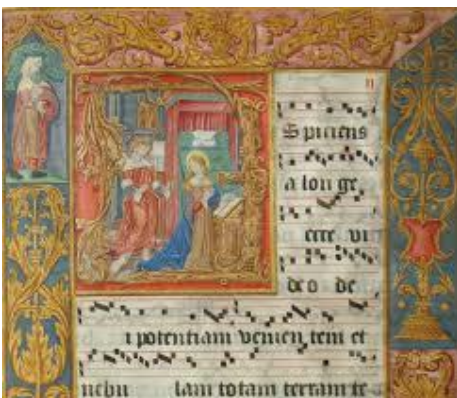 Spiciens
a lon ge,
ecce vi
deo de
i potentiam venien tem et
nebu lam totam terram te